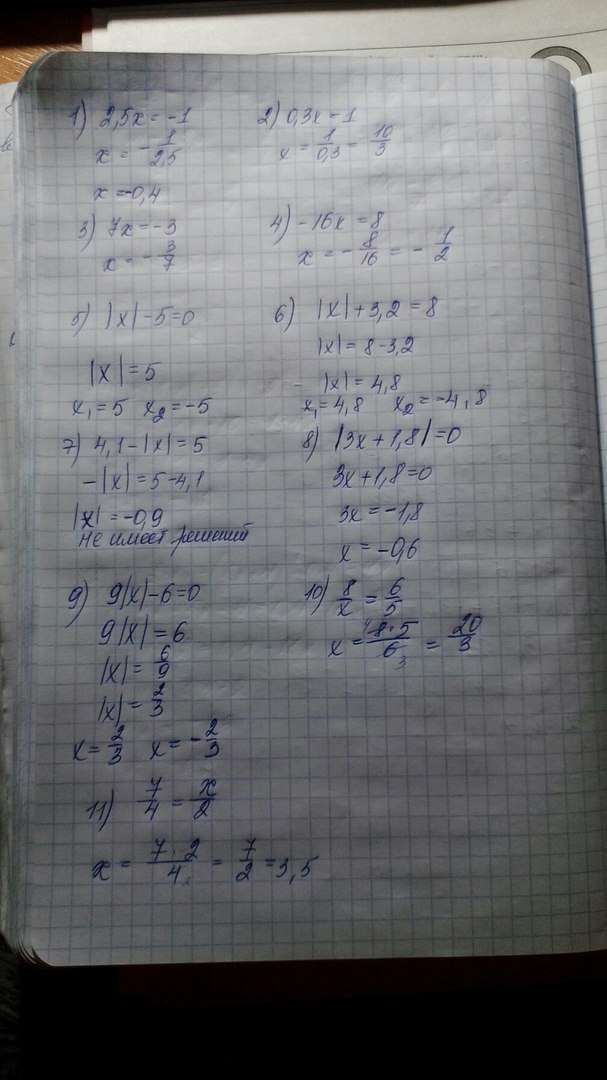 1) 2,5x = -1
x = -1/2,5
x = -0,4
2) 0,3x - 1
x = 1/0,3 = 10/3
3) 7x = -3
x = -3/7
4) -16x = 8
x = -8/16 = -1/2
5) |x| - 5 = 0
|x| = 5
x₁ = 5 x₂ = -5
6) |x| + 3,2 = 8
|x| = 8 - 3,2
|x| = 4,8
x₁ = 4,8 x₂ = -4,8
7) 4,1 - |x| = 5
-|x| = 5 - 4,1
|x| = -0,9
не имеет решений
8) |3x + 1,8| = 0
3x + 1,8 = 0
3x = -1,8
x = -0,6
9) 9|x| - 6 = 0
9|x| = 6
|x| = 6/9
|x| = 2/3
x = 2/3 x = -2/3
10) 8/x = 6/5
x = 8·5/6 = 20/3
11) 7/4 = x/2
x = 7·2/4 = 7/2 = 3,5